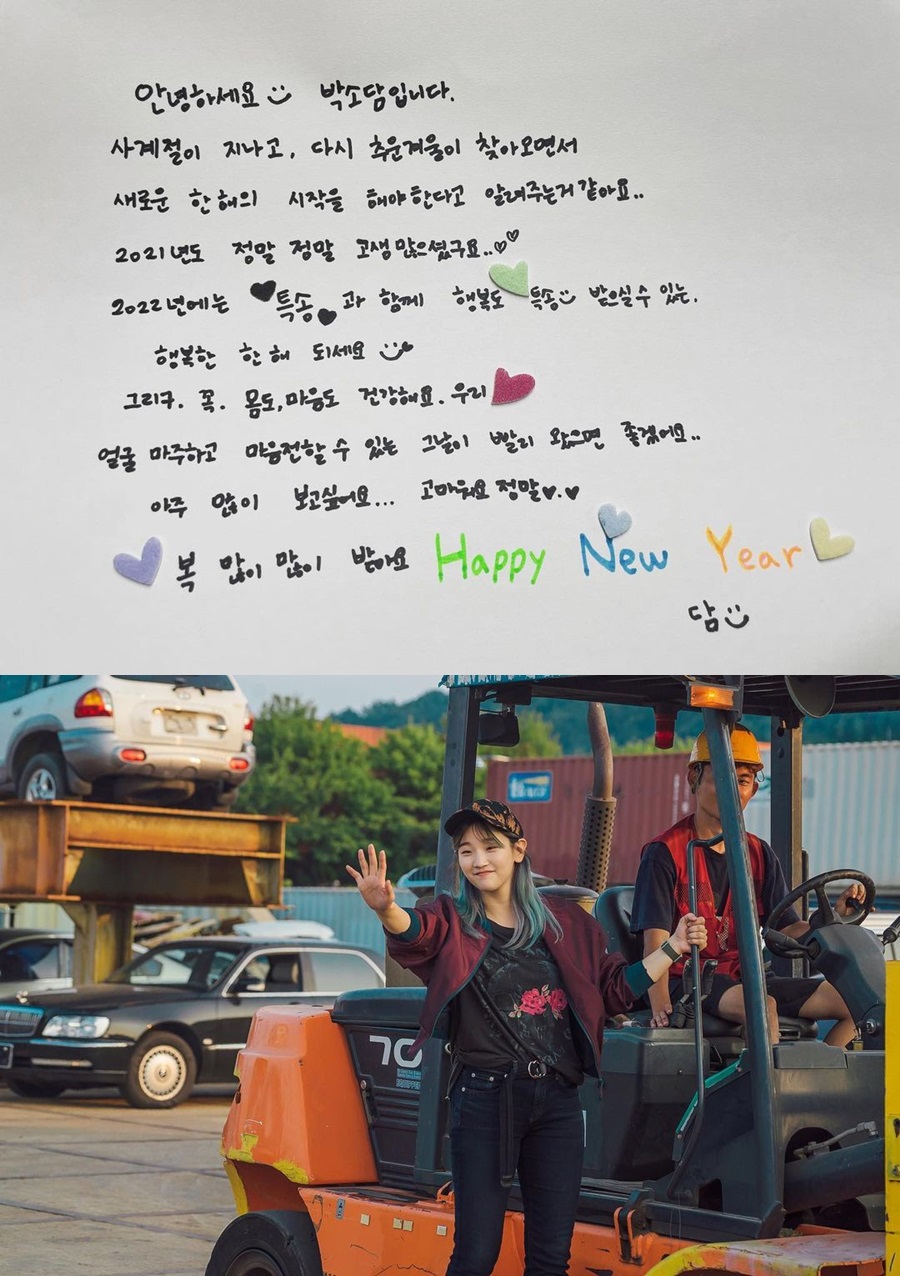 안녕하세요 박소담입니다.
사계절이 지나고, 다시 추운겨울이 찾아오면서
새로운 한해의 시작을 해야한다고 알려주는거 같아요..
2021년도 정말 정말 고생 많으셨구요..
2022년에는 특송 과 함께 행복도 특송 받으실 수 있는,
행복한 한해 되세요
그리구. 꼭. 몸도, 마음도 건강해요. 우리
얼굴 마주하고 마음전할 수 있는 그날이 빨리 왔으면 좋겠어요..
아주 많이 보고싶어요... 고마워요 정말
복 많이 많이 받아요 Happy New Year
담
70